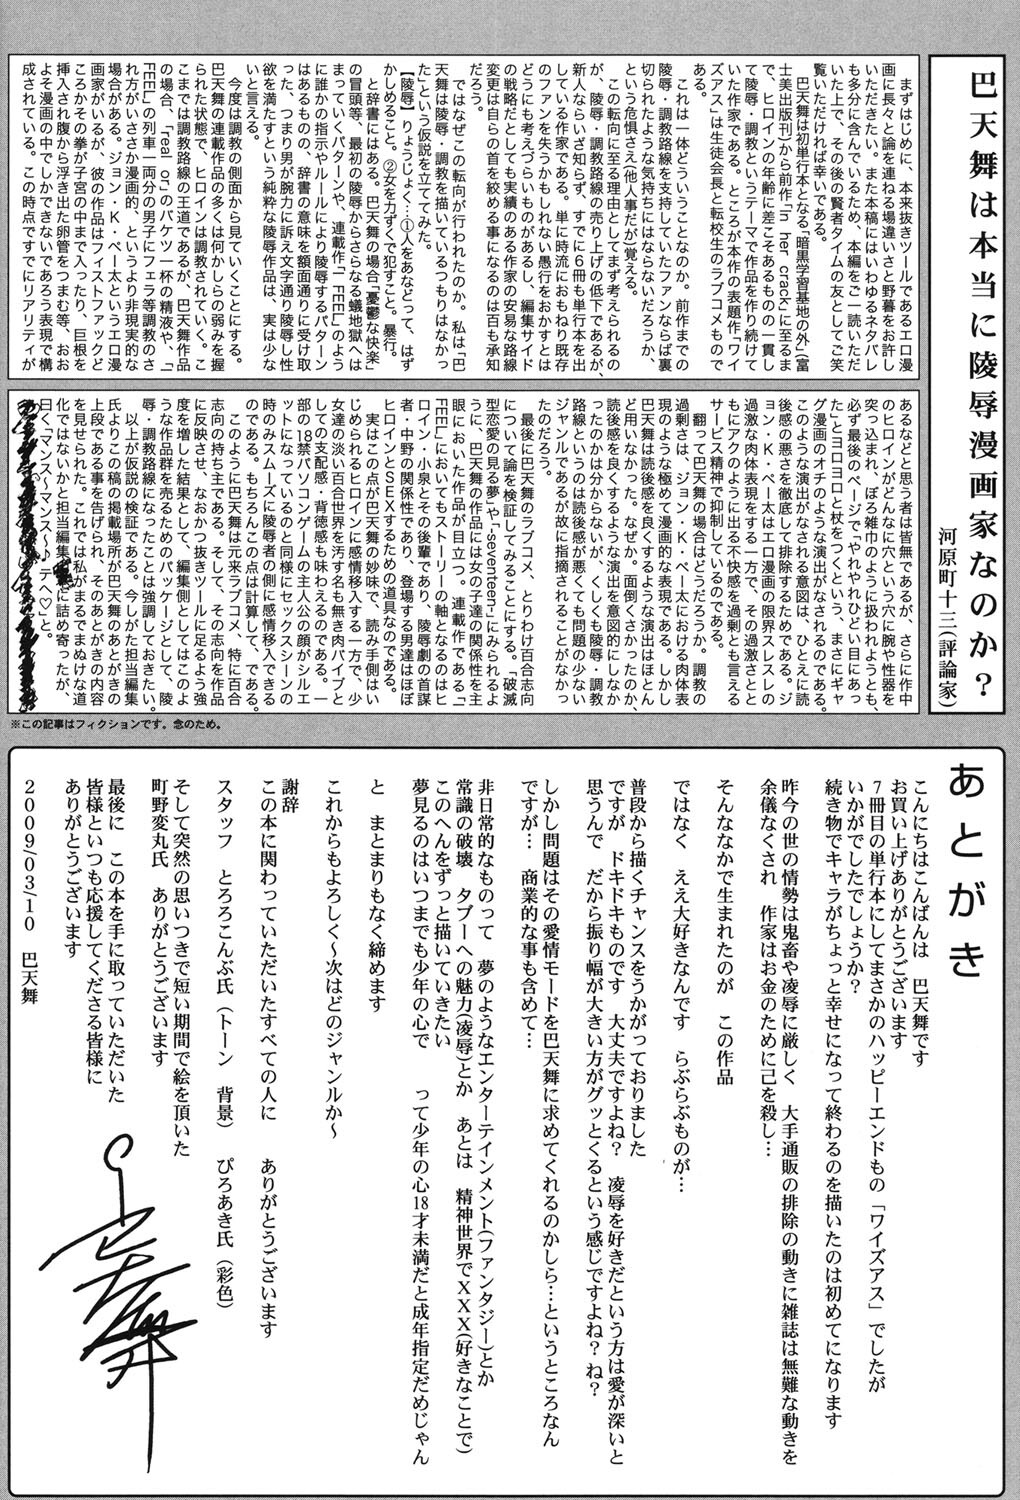 巴天舞は本当に陵辱漫画家なのか?
河原町十三(評論家)
まずはじめに、本来抜きツールであるエロ漫
画に長々と論を連ねる場違いさと野暮をお許し
いただきたい。また本稿にはいわゆるネタバレ
も多分に含んでいるため、本編をご一読いただ
いた上で、その後の賢者タイムの友としてご笑
覧いただければ幸いである。
巴天舞は初単行本となる「暗黒学習基地の外」(富
士美出版刊)から前作「in her crack」に至るま
で、ヒロインの年齢に差こそあるものの一貫し
て陵辱・調教というテーマで作品を作り続けて
いた作家である。ところが本作の表題作「ワイ
ズアス」は生徒会長と転校生のラブコメもので
ある。
これは一体どういうことなのか。前作までの
陵辱・調教路線を支持していたファンならば裏
切られたような気持ちにはならないだろうか、
という危惧さえ(他人事だが)覚える。
この転向に至る理由としてまず考えられるの
が、陵辱・調教路線の売り上げの低下であるが、
新人ならいざ知らず、すでに6冊も単行本を出
している作家である。単に時流におもねり既存
のファンを失うかもしれない愚行をおかすとは
どうにも考えづらいものがあるし、編集サイド
の戦略だとしても実績のある作家の安易な路線
変更は自らの首を絞める事になるのは百も承知
だろう。
ではなぜこの転向が行われたのか。私は「巴
天舞は陵辱・調教を描いているつもりはなかっ
た」という仮説を立ててみた。
【陵辱】りょうじょく:①人をあなどって、はず
かしめること。②女を力ずくで犯すこと。暴行。
と辞書にはある。巴天舞の場合「憂鬱な快楽」
の冒頭等、最初の陵辱からさらなる蟻地獄へは
まっていくパターンや、連載作「I FEEL」のよう
に誰かの指示やルールにより陵辱するパターン
はあるものの、辞書の意味を額面通りに受け取
った、つまり男が腕力に訴え文字通り陵辱し性
欲を満たすという純粋な陵辱作品は、実は少な
いと言える。
今度は調教の側面から見ていくことにする。
巴天舞の連載作品の多くは何かしらの弱みを握
られた状態で、ヒロインは調教されていく。こ
こまでは調教路線の王道であるが、巴天舞作品
の場合、「feal or」のバケツ一杯の精液や、「I
FEEL」の列車一両分の男子にフェラ等調教のさ
れ方がいささか漫画的、というより非現実的な
場合がある。ジョン・K・ペー太というエロ漫
画家がいるが、彼の作品はフィストファックどこ
ろかその拳が子宮の中まで入ったり、巨根を
挿入され腹から浮き出た卵管をつまむ等、おお
よそ漫画の中でしかできないであろう表現で構
成されている。この時点ですでにリアリティが
あるなどと思う者は皆無であるが、さらに作中
のヒロインがどんなに穴という穴に腕や性器を
突っ込まれ、ぼろ雑巾のように扱われようとも、
必ず最後のページで「やれやれひどい目にあっ
た」とヨロヨロと杖をつくという、まさにギャ
グ漫画のオチのような演出がなされるのである。
このような演出がされる意図は、ひとえに読
後感の悪さを徹底して排除するためである。ジ
ョン・K・ペー太はエロ漫画の限界スレスレの
過激な肉体表現をする一方で、その過激さとと
もにアクのように出る不快感を過剰とも言える
サービス精神で抑制しているのである。
翻って巴天舞の場合はどうだろうか。調教の
過剰さは、ジョン・K・ペー太における肉体表
現のような極めて漫画的な表現である。しかし
巴天舞は読後感を良くするような演出はほとん
ど用いなかった。なぜか。面倒くさかったのか、
読後感を良くするような演出を意図的にしなか
ったのかは分からないが、くしくも陵辱・調教
路線というのは読後感が悪くても問題の少ない
ジャンルであるが故に指摘されることがなかっ
たのだろう。
最後に巴天舞のラブコメ、とりわけ百合志向
について論を検証してみることにする。「破滅
型恋愛の見る夢」や「-seventeen-」にみられるよ
うに、巴天舞の作品には女の子達の関係性を主
眼においた作品が目立つ。連載作である「I
FEEL」においてもストーリーの軸となるのはヒ
ロイン・小泉とその後輩であり、陵辱劇の首謀
者・中野の関係性であり、登場する男達はほぼ
ヒロインとSEXするための道具なのである。
実はこの点が巴天舞の妙味で、読み手側はい
じめられるヒロインに感情移入する一方で、少
女達の淡い百合世界を汚す名も無き肉バイブと
しての支配感・背徳感も味わえるのである。一
部の18禁パソコンゲームの主人公の顔がシルエ
ットになっているのと同様にセックスシーンの
時のみスムーズに陵辱者の側に感情移入できる
のである。もちろんこの点は計算して、である。
このように巴天舞は元来ラブコメ、特に百合
志向の持ち主である。そして、その志向を作品
に反映させ、なおかつ抜きツールに足るよう強
度を増した結果として、編集側としてはこのよ
うな作品群を売るためのパッケージとして、陵
辱・調教路線になったことは強調しておきたい。
以上が仮説の検証である。今しがた担当編集
氏よりこの稿の掲載場所が巴天舞のあとがきの
上段である事を告げられ、そのあとがきの内容
を見せられた。これでは私がまるでまぬけな道
化ではないかと担当編集に詰め寄ったが、
曰く「マンス～マンス～♪テへ♡」と。
※この記事はフィクションです。念のため。
あとがき
こんにちはこんばんは 巴天舞です
お買い上げありがとうございます
7冊目の単行本にしてまさかのハッピーエンドもの「ワイズアス」でしたが
いかがでしたでしょうか?
続き物でキャラがちょっと幸せになって終わるのを描いたのは初めてになります
昨今の世の情勢は鬼畜や凌辱に厳しく 大手通販の排除の動きに雑誌は無難な動きを
余儀なくされ 作家はお金のために己を殺し…
そんななかで生まれたのが この作品
ではなく ええ大好きなんです らぶらぶものが…
普段から描くチャンスをうかがっておりました
ですが ドキドキものです 大丈夫ですよね? 凌辱を好きだという方は愛が深いと
思うんで だから振り幅が大きい方がグッとくるという感じですよね? ね?
しかし問題はその愛情モードを巴天舞に求めてくれるのかしら…というところなん
ですが… 商業的な事も含めて…
非日常的なものって 夢のようなエンターテインメント(ファンタジー)とか
常識の破壊 タブーへの魅力(凌辱)とか あとは 精神世界でXXX(好きなことで)
このへんをずっと描いていきたい
夢見るのはいつまでも少年の心で って少年の心18才未満だと成年指定だめじゃん
と まとまりもなく締めます
これからもよろしく～次はどのジャンルか～
謝辞
この本に関わっていただいたすべての人に ありがとうございます
スタッフ とろろこんぶ氏(トーン 背景) ぴろあき氏(彩色)
そして突然の思いつきで短い期間で絵を頂いた
町野変丸氏 ありがとうございます
最後に この本を手に取っていただいた
皆様といつも応援してくださる皆様に
ありがとうございます
2009/03/10 巴天舞
巴天舞